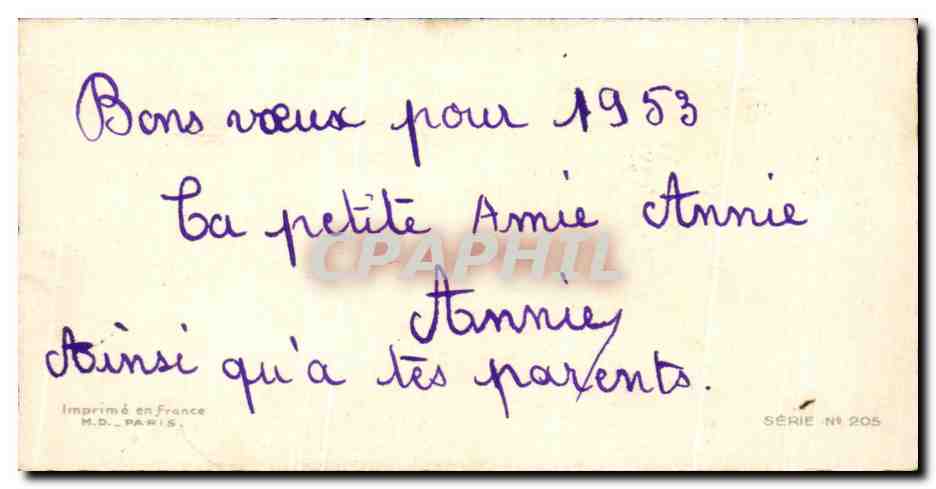 Bons vœux pour 1953
Ta petite Amie Annie
CPAPHIL
Annie
Ainsi qu'a tes parents.
Imprimé en France
M.D._PARIS.
SÉRIE Nº 205